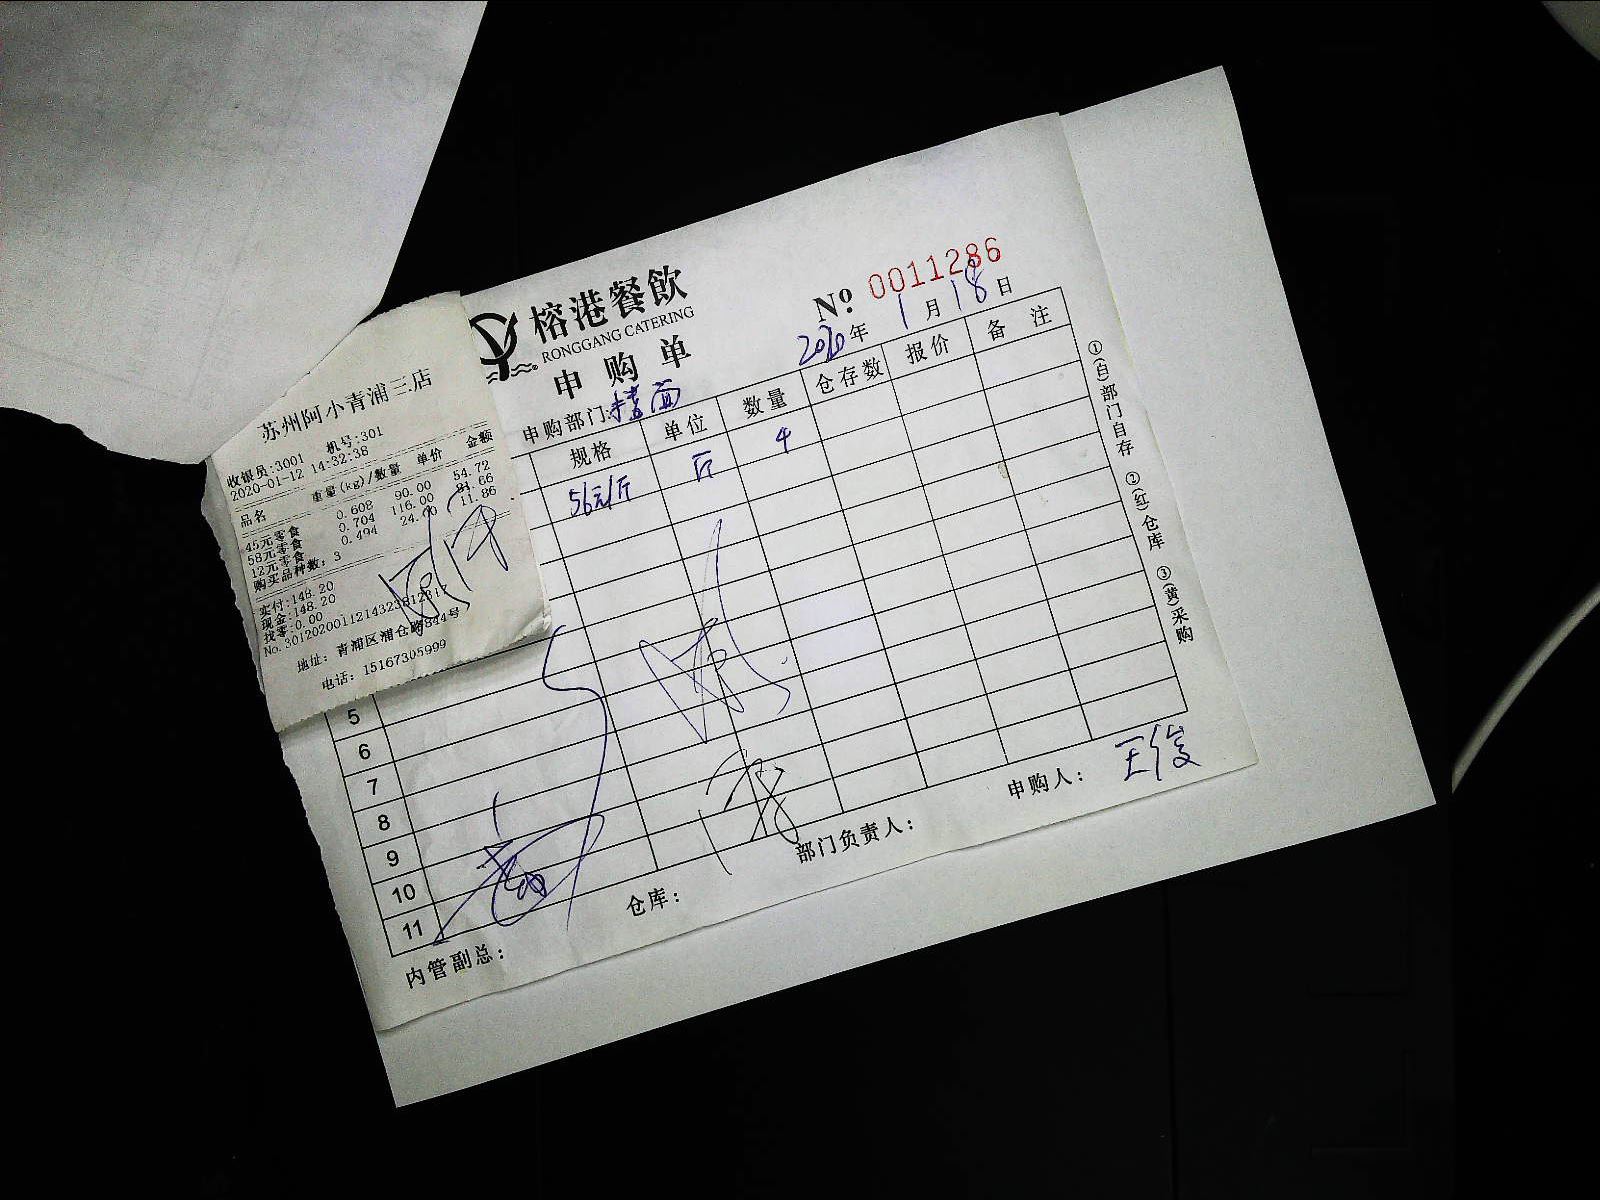 榕港餐飲
RONGGANG CATERING
申购单
No: 0011286
2020年 1月 18日
申购部门:楼面
规格 单位 数量 仓存数 报价 备注
56元/斤 斤 4
5
6
7
8
9
10
11
内管副总: 仓库: 部门负责人: 申购人: 王俊
①(白)部门自存 ②(红)仓库 ③(黄)采购
苏州阿小青浦三店
收银员:3001 机号:301
2020-01-12 14:32:38
品名 重量(kg)/数量 单价 金额
45元零食 0.608 90.00 54.72
58元零食 0.704 116.00 81.66
12元零食 0.494 24.00 11.86
购买品种数: 3
实付:148.20
现金:148.20
找零:0.00
地址: 青浦区浦仓路844号
电话: 15167305999